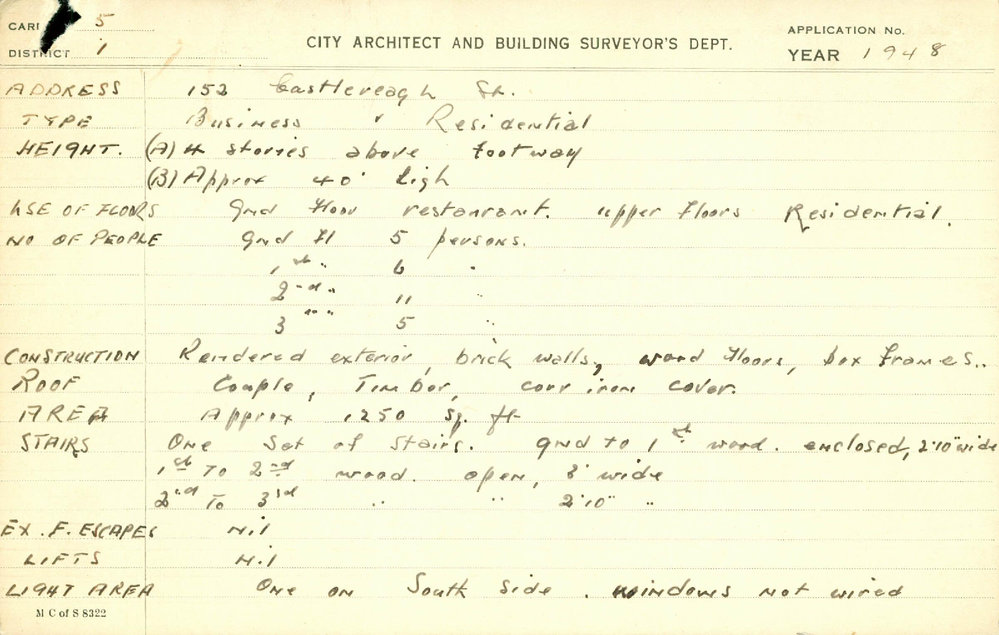 CARD 5
APPLICATION No.
DISTRICT 1
CITY ARCHITECT AND BUILDING SURVEYOR'S DEPT.
YEAR 1948
ADDRESS 152 Castlereagh St.
TYPE Business & Residential
HEIGHT. (A) 4 stories above footway
(B) Approx 40' high
USE OF FLOORS Gnd Floor restaurant. upper floors Residential.
NO OF PEOPLE Gnd Fl 5 persons.
1st " 6 "
2nd " 11 "
3rd " 5 "
CONSTRUCTION Rendered exterior, brick walls, wood floors, box frames..
ROOF Couple, Timber, corr iron cover.
AREA Approx 1250 sq. ft
STAIRS One Set of Stairs. gnd to 1st wood. enclosed, 2'10" wide
1st To 2nd wood. open, 3' wide
2nd To 3rd " " 2'10" "
EX. F. ESCAPES Nil
LIFTS Nil
LIGHT AREA One on South Side. windows not wired
M C of S 8322